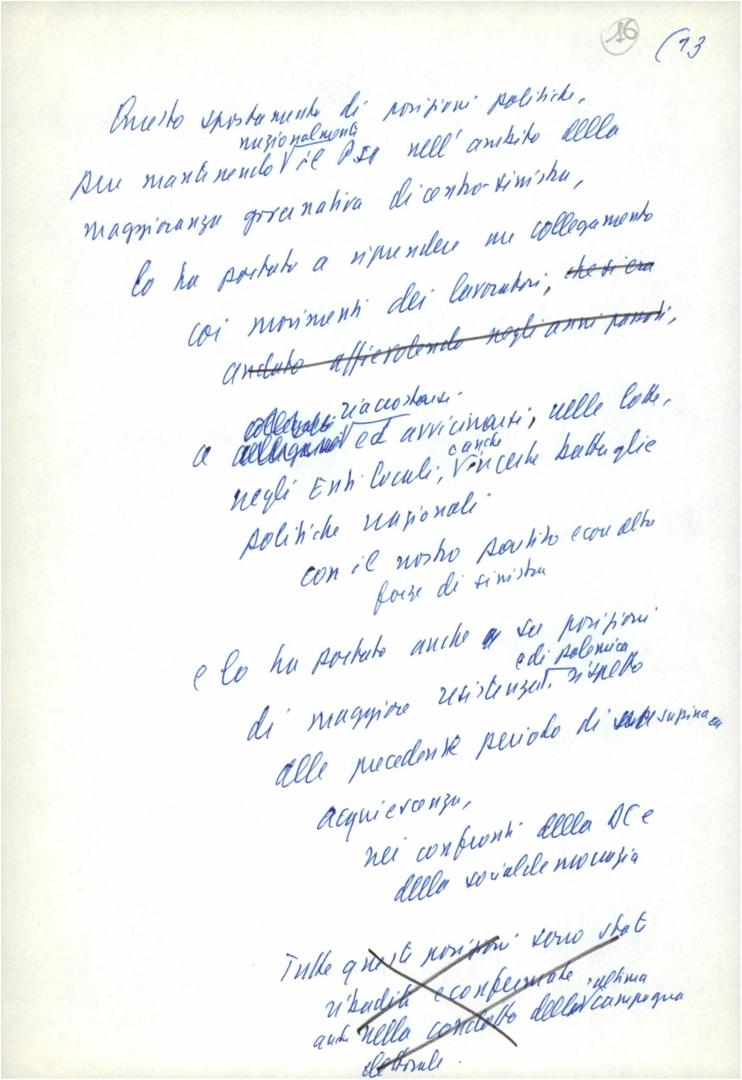 16 (13
Questo spostamento di posizioni politiche,
nazionalmente
pur mantenendo il PSI nell'ambito della
maggioranza governativa di centro-sinistra,
lo ha portato a riprendere un collegamento
coi movimenti dei lavoratori, che si era
andato affievolendo negli anni passati,
riaccostarsi
a ed avvicinarsi, nelle lotte,
e anche
negli Enti locali, in certe battaglie
politiche nazionali
con il nostro partito e con altre
forze di sinistra
e lo ha portato anche su posizioni
e di polemica
di maggiore resistenza, rispetto
alle precedente periodo di supina
acquiescenza,
nei confronti della DC e
della socialdemocrazia
Tutte questi posizioni sono stati
ribaditi e confermate
ultima
anche nella condotta della campagna
elettorale.